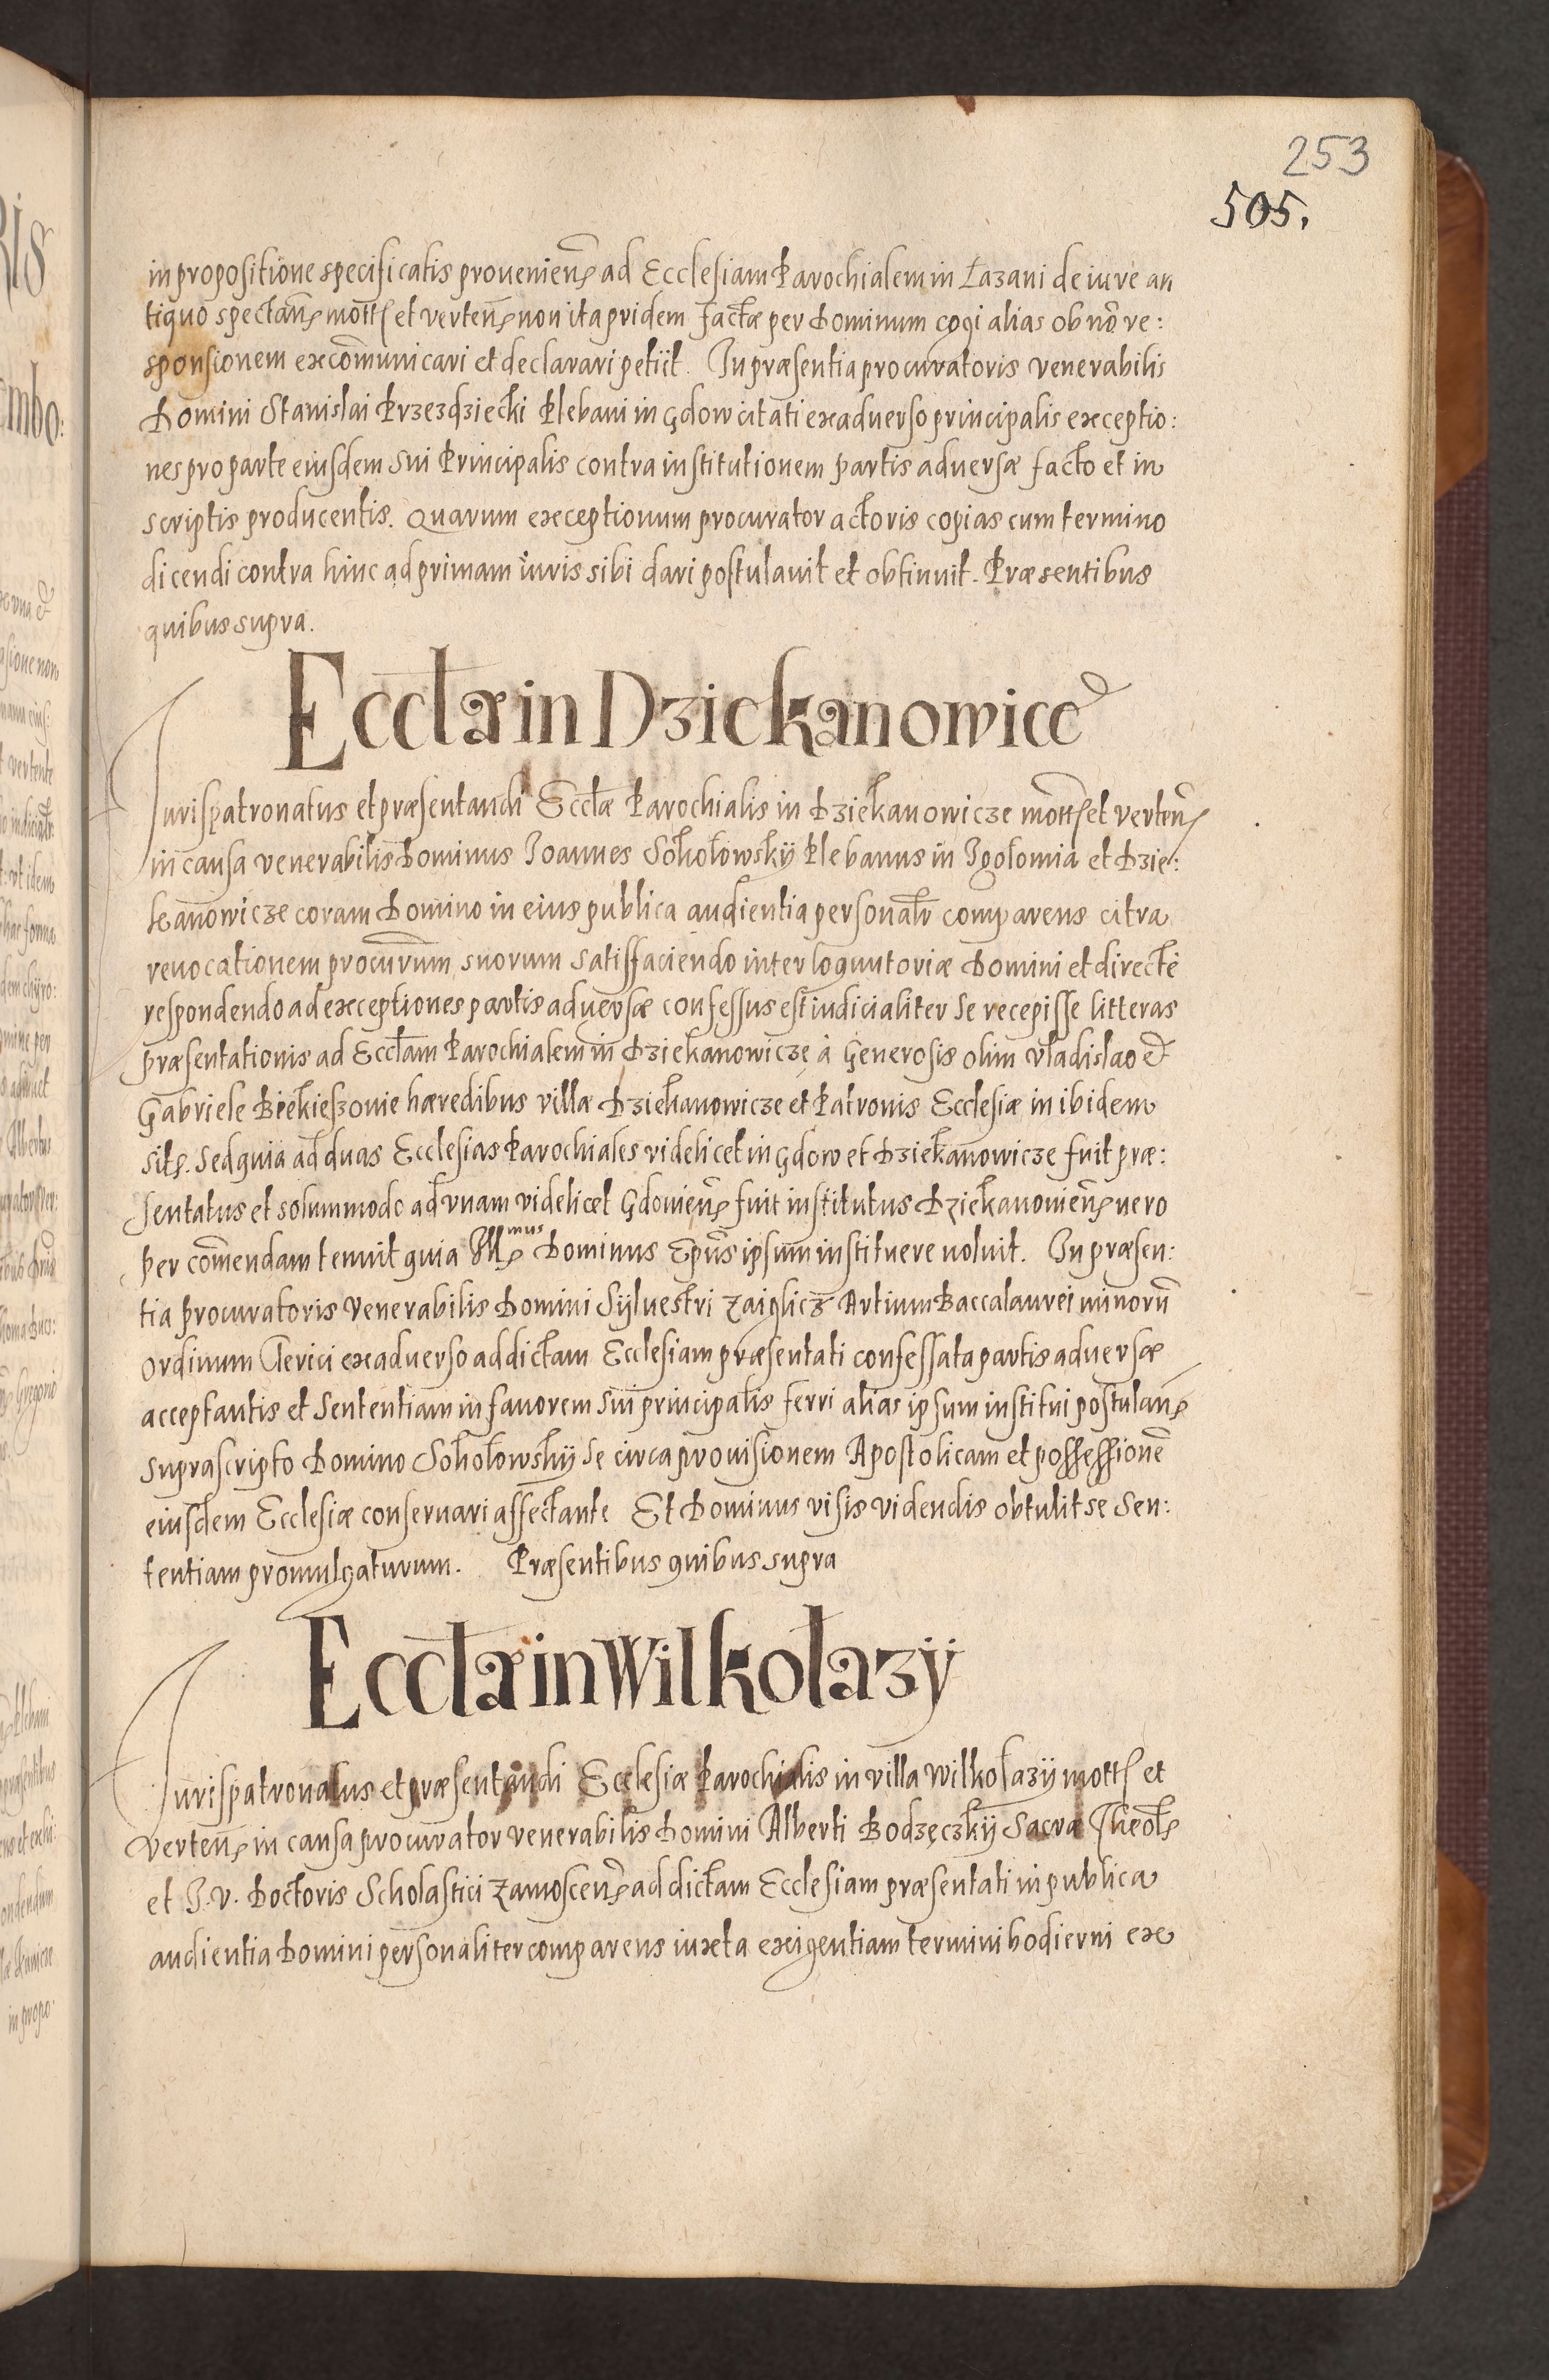 253
505.
in propositione specificatis prouenień ad Ecclesiam Parochialem in Łazani de iure an
tiquo spectań mott et verteń non ita pridem factæ per Dominum cogi alias ob nõ re:
sponsionem excõmunicari et declarari petiit. In præsentia procuratoris venerabilis
Domini Stanislai Przezdziecki Plebani in Gdow citati ex aduerso principalis exceptio:
nes pro parte eiusdem sui Principalis contra institutionem partis aduersæ facto et in
scriptis producentis. Quarum exceptionum procurator actoris copias cum termino
dicendi contra hinc ad primam iuris sibi dari postulauit et obtinuit. Præsentibus
quibus supra.
Eccłæ in Dziekanowice
Iurispatronatus et præsentandi Eccłæ Parochialis in Dziekanowicze mott et verteń
in causa venerabilis Dominus Joannes Sokołowskÿ Plebanus in Igołomia et Dzie:
kanowicze coram Domino in eius publica audientia personałr comparens citra
reuocationem procurũm suorum satisfaciendo interloquutoriæ Domini et directè
respondendo ad exceptiones partis aduersæ confessus est iudicialiter se recepisse litteras
præsentationis ad Eccłam Parochialem in Dziekanowicze à Generosis olim Vladislao &
Gabriele Biekieszowie hæredibus villæ Dziekanowicze et Patronis Ecclesiæ in ibidem
sit. Sed quia ad duas Ecclesias Parochiales videlicet in Gdow et Dziekanowicze fuit præ:
sentatus et solummodo ad vnam videlicet Gdowień fuit institutus Dziekanowień uero
per cõmendam tenuit quia Illmus Dominus Epũs ipsum instituere noluit. In præsen:
tia procuratoris Venerabilis Domini Syluestri Zaiglicz Artium Baccalaurei minorũ
ordinum Clerici ex aduerso ad dictam Ecclesiam præsentati confessata partis aduersæ
acceptantis et sententiam in fauorem sui principalis ferri alias ipsum institui postulań
suprascripto Domino Sokołowskÿ se circa prouisionem Apostolicam et possessionẽ
eiusdem Ecclesiæ conseruari affectante Et Dominus visis videndis obtulit se sen:
tentiam promulgaturum. Præsentibus quibus supra
Eccłæ in Wilkołazÿ
Iurispatronatus et præsentandi Ecclesiæ Parochialis in villa Wilkołazÿ mott et
verteń in causa procurator venerabilis Domini Alberti Bodzęczkÿ Sacræ Theoł
et J. V. Doctoris Scholastici Zamosceń ad dictam Ecclesiam præsentati in publica
audientia Domini personaliter comparens iuxta exigentiam termini hodierni ex